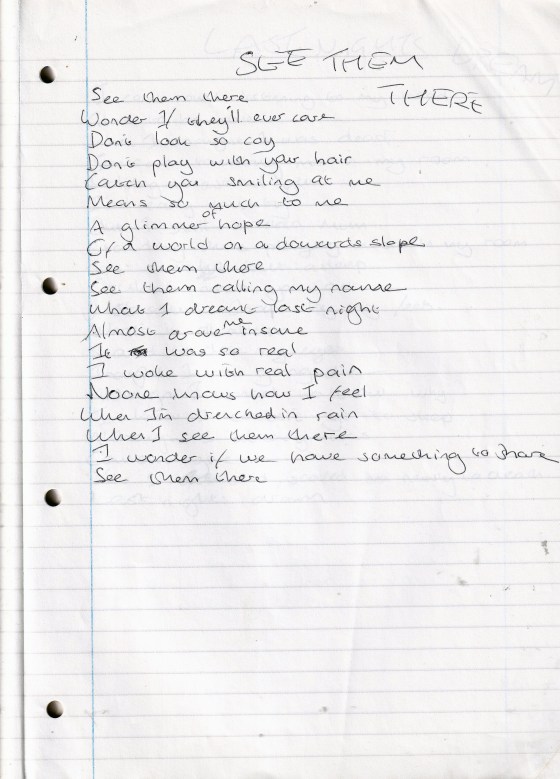 SEE THEM
THERE
See them there
Wonder If they'll ever care
Don't look so coy
Don't play with your hair
Catch you smiling at me
Means so much to me
A glimmer of hope
Of a world on a downwards slope
See them there
See them calling my name
What I dreamt last night
Almost drove me insane
It was so real
I woke with real pain
Noone knows how I feel
When I'm drenched in rain
When I see them there
I wonder if we have something to share
See them there